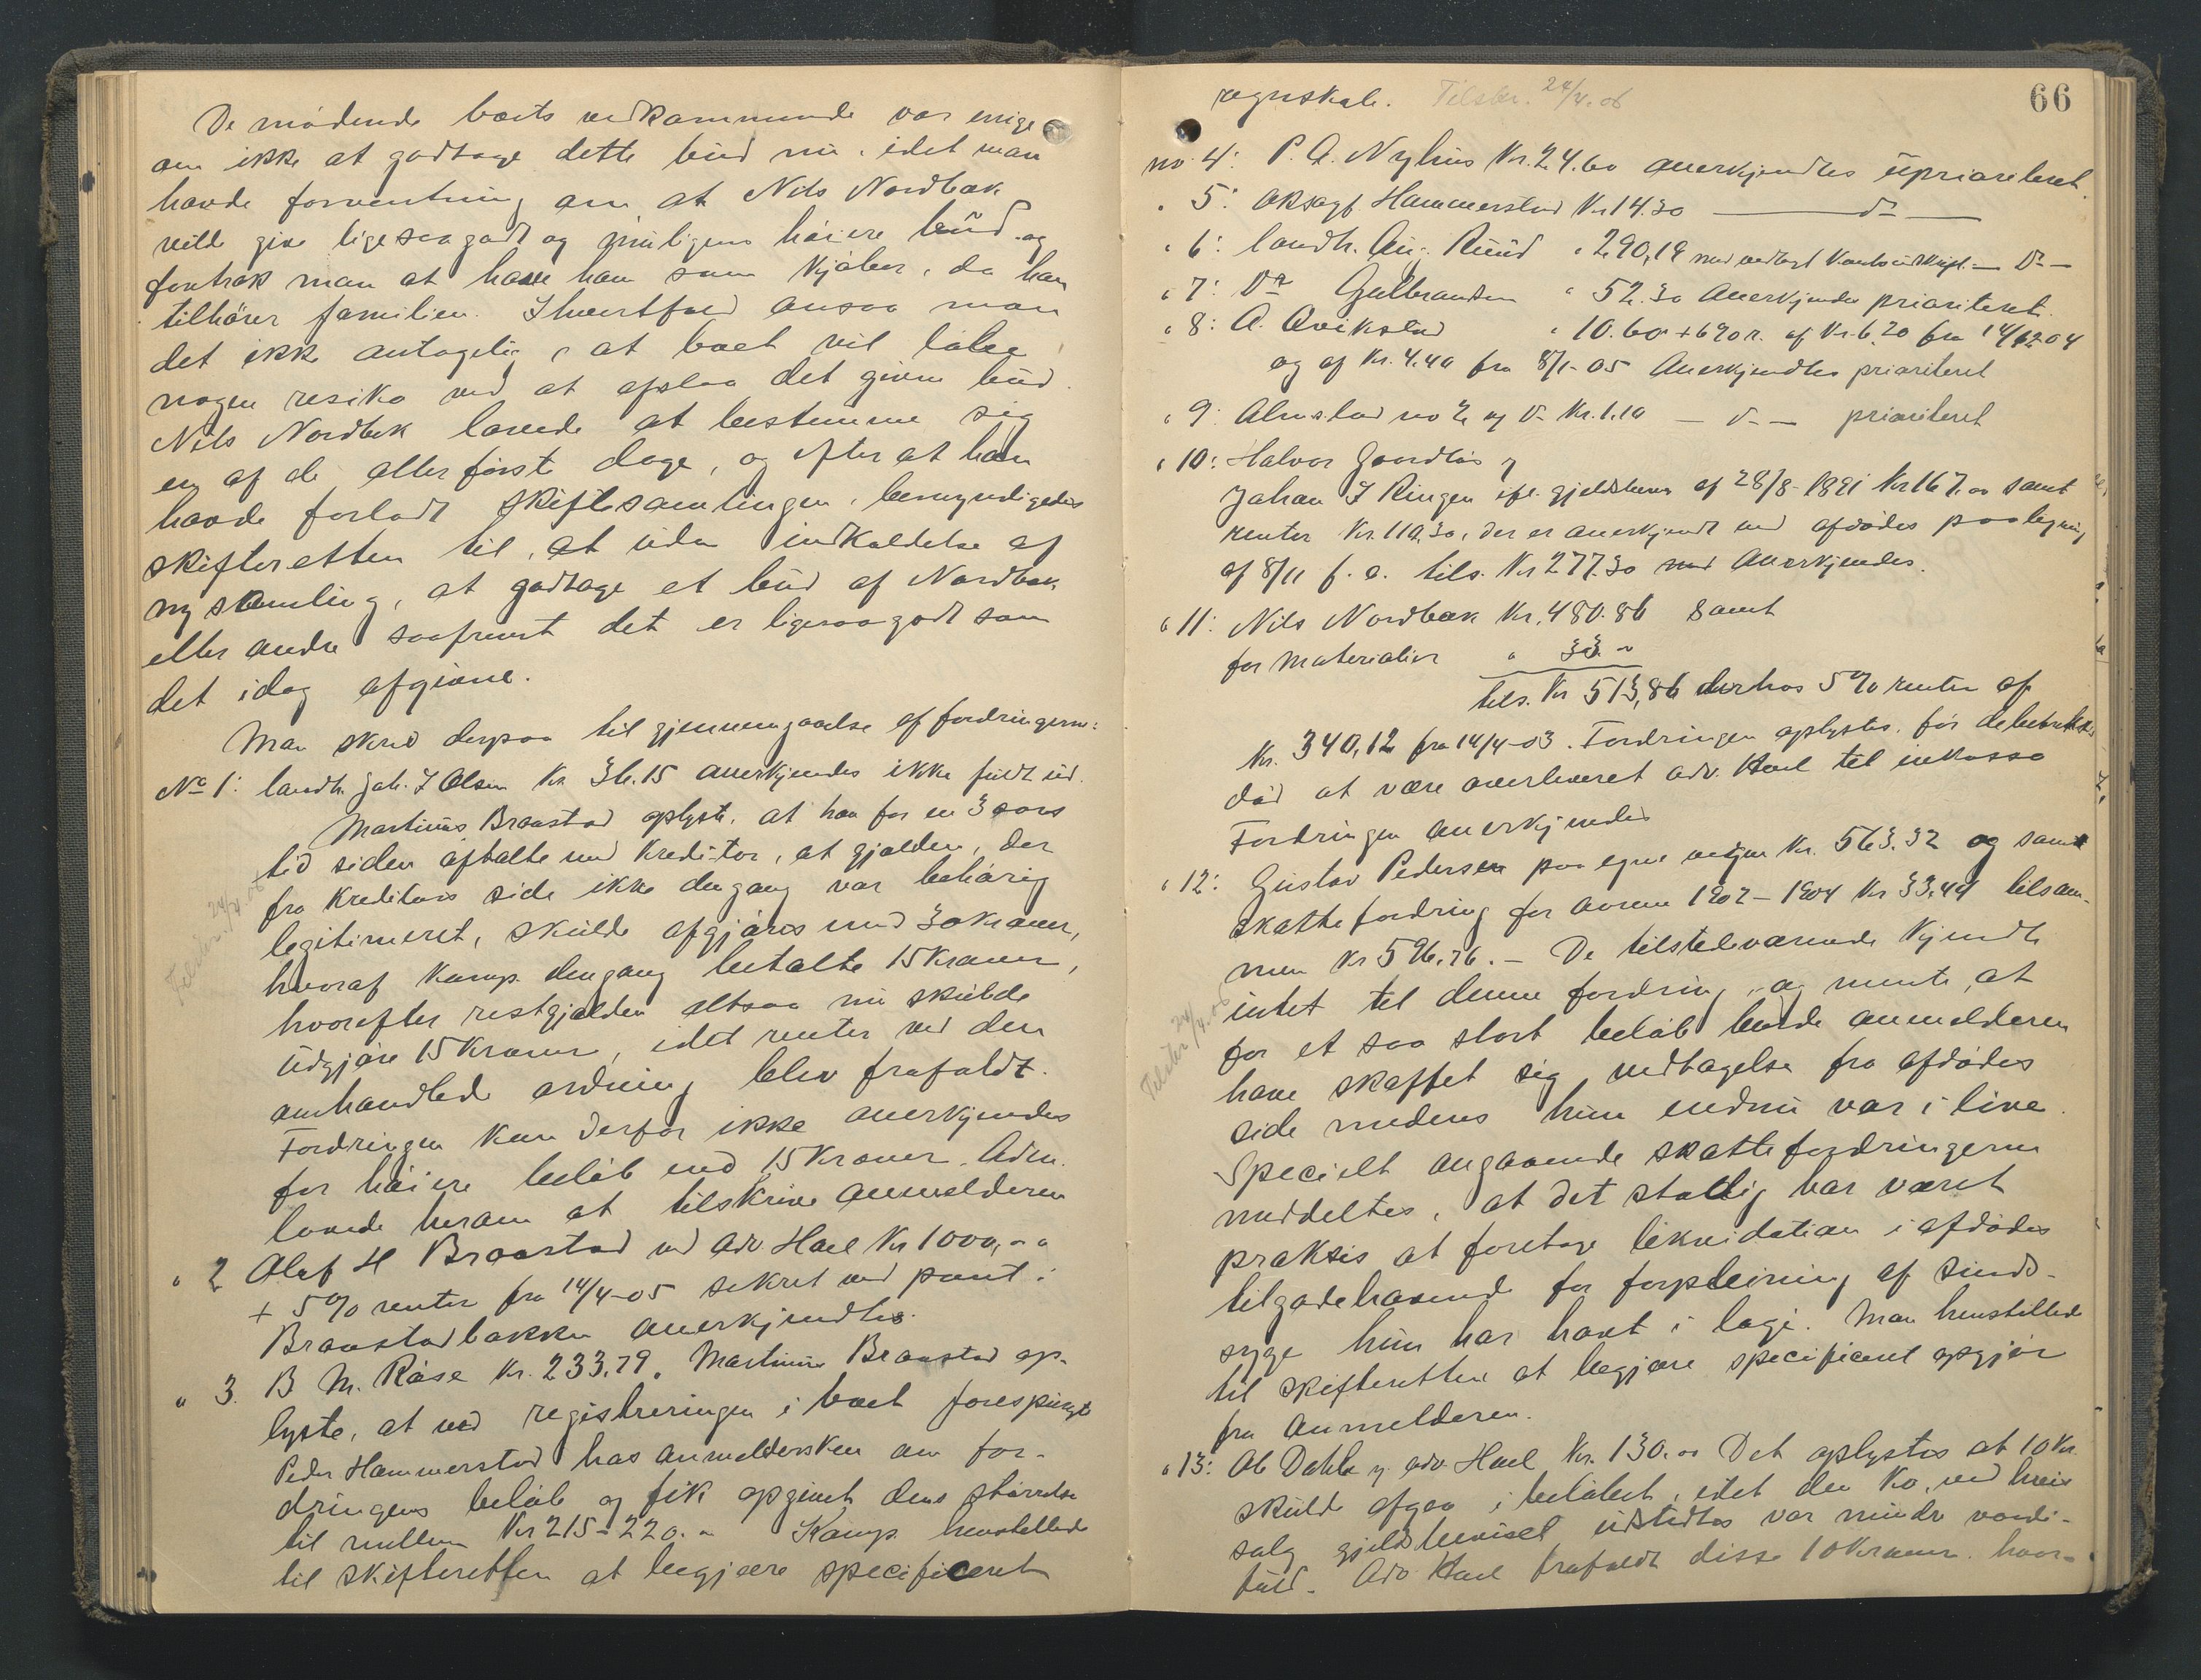 De mødende boets vedkommende var enige
om ikke at godtage dette bud nu, idet man
havde forventning om at Nils Nordbæk
vilde give ligesaa godt og muligens høiere bud og
foretrak man at have ham som kjøber, da han
tilhører familien. Ihvertfald ansaa man
det ikke antagelig, at boet vil løbe
nogen resiko ved at afslaa det givne bud.
Nils Nordbek lovede at bestemme sig
en af de aller første dage, og efter at han
havde forladt skiftesamlingen, bemyndigedes
skifteretten til, at uden indkaldelse af
ny samling, at godtage et bud af Nordbæk
eller andre saafremt det er ligesaa godt som
det idag afgivne.
Man skred derpaa til gjennemgaaelse af fordringerne:
No 1: landh. Joh. J Olsen Kr. 36.15 anerkjendes ikke fuldt ud.
Martinus Braastad oplyste, at han for en 3 aars
tid siden aftalte med kreditor, at gjælden, der
fra kreditors side ikke dengang var behørig
legitimeret, skulde afgjøres med 30 kroner,
hvoraf komp. dengang betalte 15 Kroner,
hvorefter restgjælden altsaa nu skulde
udgjøre 15 Kroner, idet renter ved den
omhandlede ordning blev frafaldt.
Fordringen kan derfor ikke anerkjendes
for høiere beløb end 15 Kroner. Adm.
lovede herom at tilskrive anmelderen
Tilskr. 24/4.06
" 2 Olaf H Braastad ved adv. Hael Kr 1000,00
+ 5% renter fra 14/4-05 sikret ved pant i
Braastadbakken anerkjendtes.
" 3. B M. Röise Kr. 233,79. Martinus Braastad op-
lyste, at ved registreringen i boet forespurgte
Peder Hammerstad hos anmeldersken om for-
dringens beløb og fik opgivet dens størrelse
til mellem Kr 215-220. Komp. henstillede
til skifteretten at begjære specificeret
66
regnskab. Tilskr. 24/4.06
no. 4: P. A. Nyhus Kr. 24.60 anerkjendtes uprioriteret
" 5: Hammerstad Kr 14.30 — do —
" 6: landh. Aug. Ruud " 290,19 med — Do —
" 7: Do Gulbrandsen " 52.30 Anerkjendes prioriteret.
" 8: A. Avikstad " 10.60 + 6% r. af Kr. 6.20 fra 14/12 04
og af Kr. 4.40 fra 8/1-05 Anerkjendtes prioriteret
" 9: Almstad Kr. 1.10 — do — prioriteret
" 10: Halvor Gaardløs og
Johan J Ringen ifl. gjeldsbrev af 28/8-1891 Kr 167.00 samt
renter Kr. 110,30, der er anerkjendt ved afdødes paategning
af 8/11 f. a. tils. Kr 277.30 Anerkjendes.
" 11: Nils Nordbæk Kr. 480.86 samt
for materialier " 33. "
tils. Kr 513,86 derhos 5% renter af
Kr. 340,12 fra 14/4-03. Fordringen oplystes, før debetricis
død at være overleveret adv. Hael til inkasso
Fordringen anerkjendes
" 12: Gustav Pedersen paa egne vegne Kr. 563.32 og samt
skattefordring for aarene 1902-1904 Kr 33.44 tilsam-
men Kr 596.76. — De tilstedeværende kjendte
intet til denne fordring, og mente, at
for et saa stort beløb burde anmelderen
have skaffet sig vedtagelse fra afdødes
side medens hun endnu var i live.
Specielt angaaende skattefordringerne
meddeltes, at det stadig har været
praksis at foretage likvidation i afdødes
tilgodehavende for forpleining af sinds-
syge hun har havt i logi. Man henstillede
til skifteretten at begjære specificeret opgjør
fra anmelderen.
Tilskr. 24/4.06
" 13: Ab Dahle v. adv. Hael Kr. 130.00 Det oplystes at 10 Kr
skulde afgaa i beløbet, idet den ko, ved hvis
salg gjeldsbeviset udstedtes var mindre værdi-
fuld. Adv Hael frafaldt disse 10 kroner. hvor-